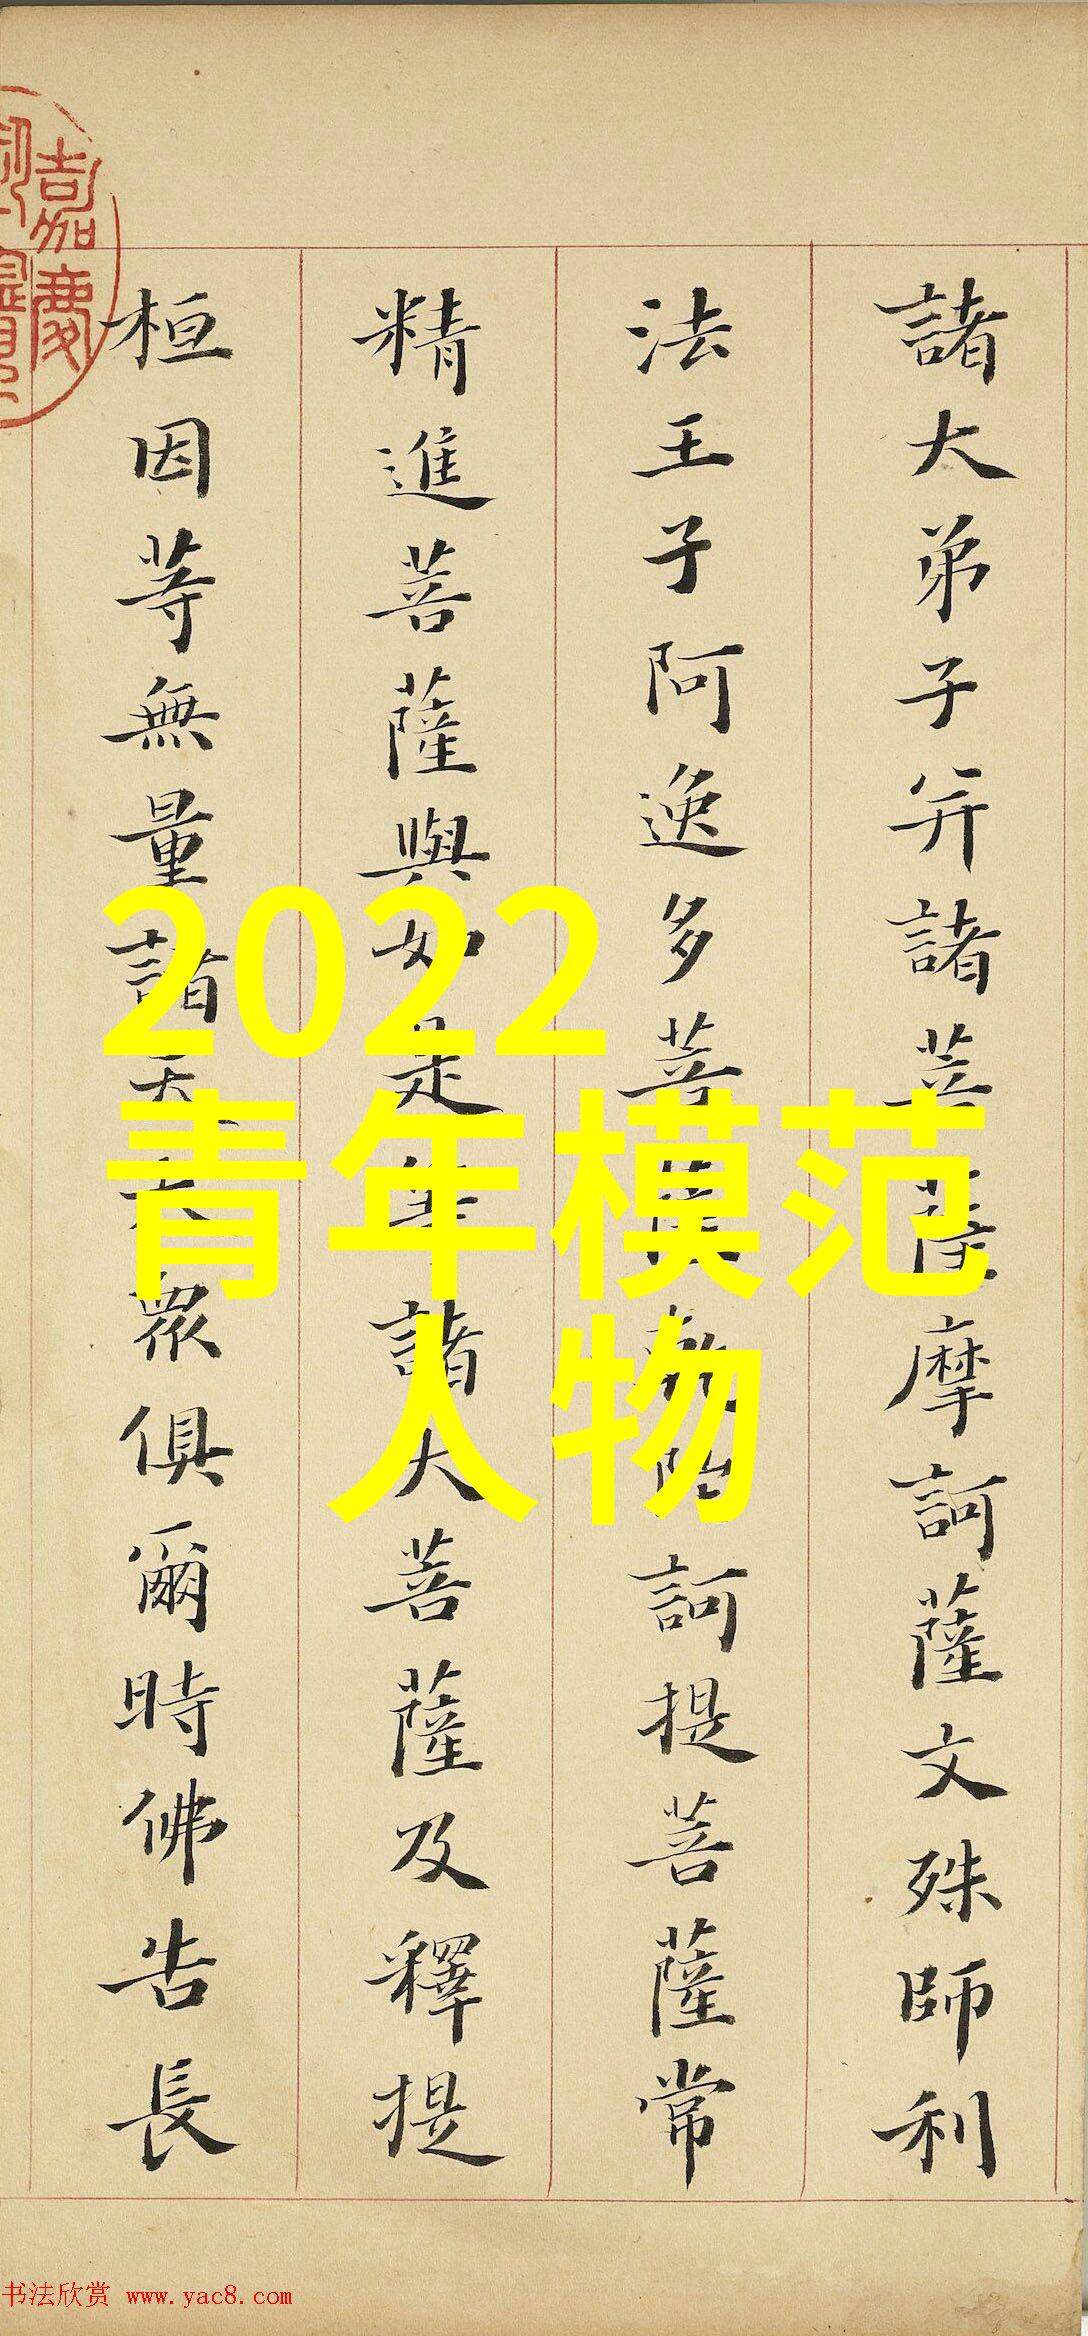 諸大弟子并諸菩薩摩訶薩文殊師利
法王子阿逸多菩薩乾陀訶提菩薩常
精進菩薩與如是等諸大菩薩及釋提
桓因等無量諸天大眾俱爾時佛告長
嘉慶
2022
青年模范
人物
书法欣赏 www.yac8.com